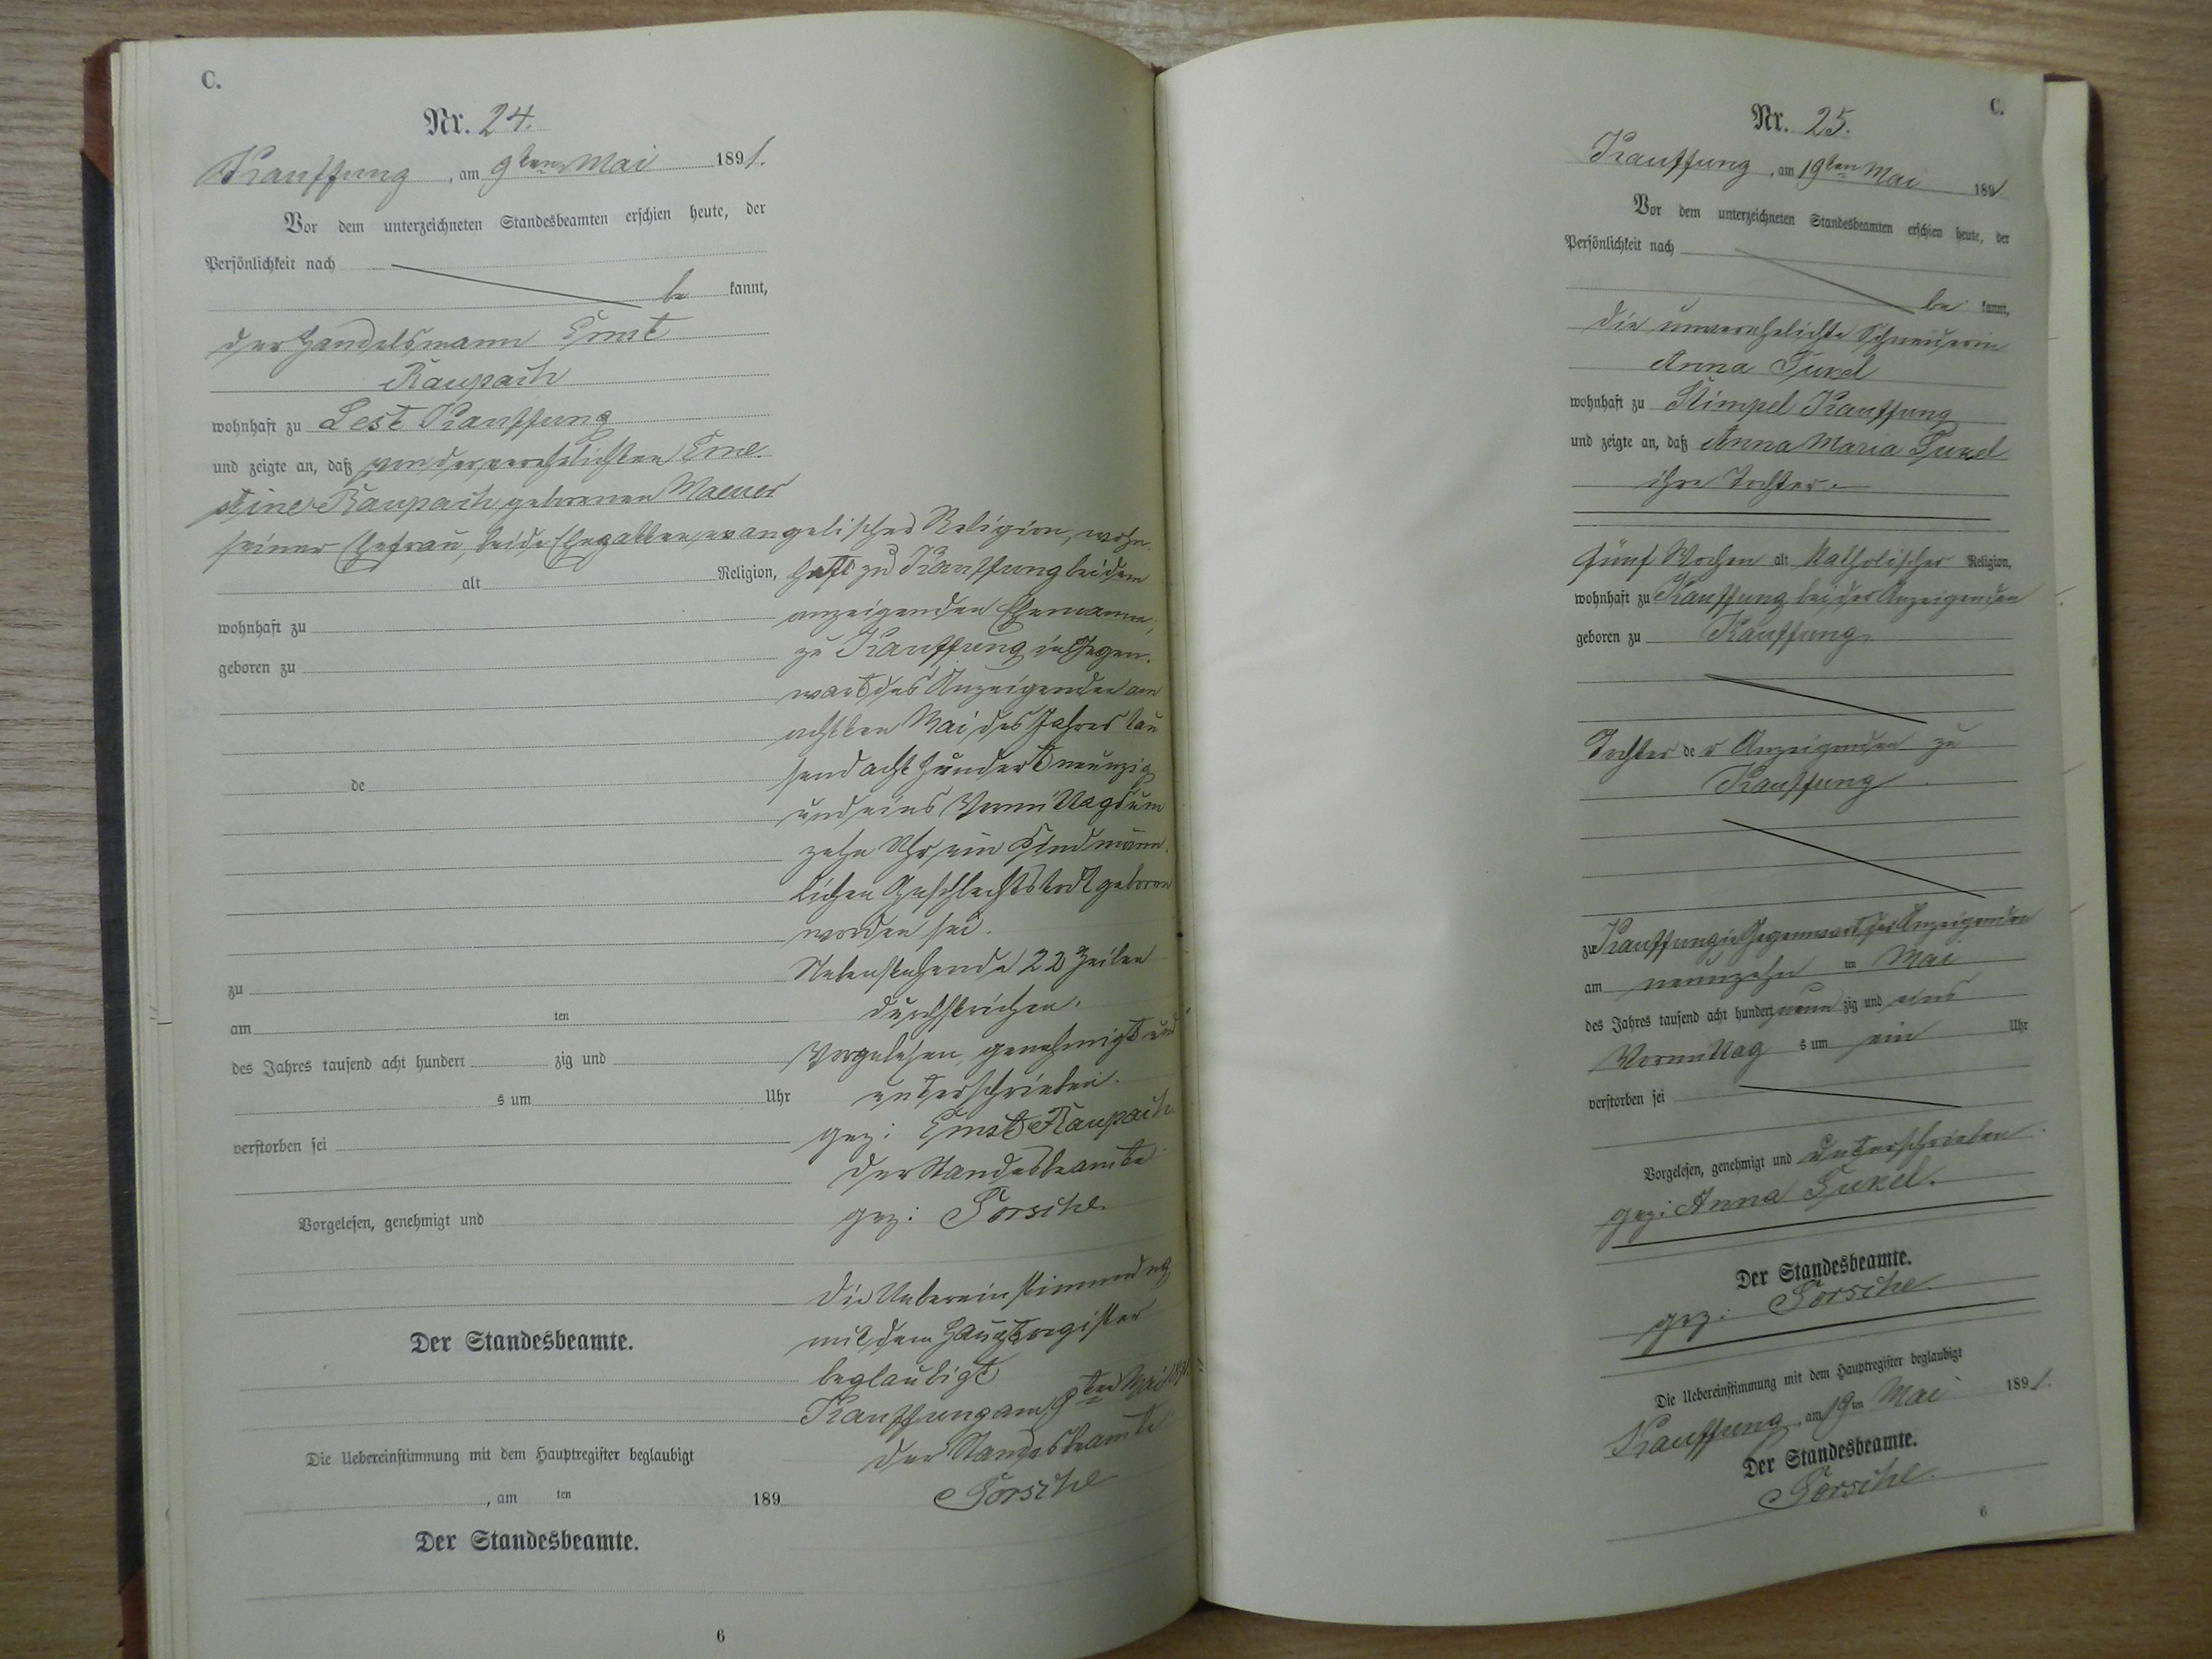 C.
Nr. 24.
Kauffung, am 9ten Mai 1891.
Vor dem unterzeichneten Standesbeamten erschien heute, der
Persönlichkeit nach
be kannt,
der Handelsmann Ernst
Raupach
wohnhaft zu Lest Kauffung
und zeigte an, daß von der verehelichten Erne-
stine Raupach geborenen
seiner Ehefrau, beide Ehegatten evangelischer Religion, wohn-
alt Religion, haft zu Kauffung bei dem
anzeigenden Ehemanne,
wohnhaft zu
zu Kauffung in Gegen-
geboren zu
wart des Anzeigenden am
achtten Mai des Jahres tau
send acht hundert neunzig
de
und eins Vormittags um
zehn Uhr ein Kind männ-
lichen Geschlechts todt geboren
worden sei.
Nebenstehende 22 Zeilen
zu
durchstrichen.
am ten
Vorgelesen, genehmigt und
des Jahres tausend acht hundert zig und
unterschrieben.
s um Uhr
gez: Ernst Raupach
verstorben sei
der Standesbeamte
Vorgelesen, genehmigt und
gez: Porsche
die Uebereinstimmung
mit dem Hauptregister
Der Standesbeamte.
beglaubigt
Kauffung am 9ten Mai 1891.
der Standesbeamte
Die Uebereinstimmung mit dem Hauptregister beglaubigt
Porsche
, am ten 189
Der Standesbeamte.
6
C.
Nr. 25.
Kauffung, am 19ten Mai 1891
Vor dem unterzeichneten Standesbeamten erschien heute, der
Persönlichkeit nach
be kannt,
die unverehelichte Schneiderin
Anna
wohnhaft zu Stimpel Kauffung
und zeigte an, daß Anna Maria
ihre Tochter
fünf Wochen alt katholischer Religion,
wohnhaft zu Kauffung bei der Anzeigenden
geboren zu Kauffung
Tochter der Anzeigenden zu
Kauffung
zu Kauffung in Gegenwart der Anzeigenden
am neunzehn ten Mai
des Jahres tausend acht hundert neun zig und eins
Vormittag s um ein Uhr
verstorben sei
Vorgelesen, genehmigt und unterschrieben
gez: Anna
Der Standesbeamte.
gez: Porsche
Die Uebereinstimmung mit dem Hauptregister beglaubigt
Kauffung, am 19ten Mai 1891.
Der Standesbeamte.
Porsche
6